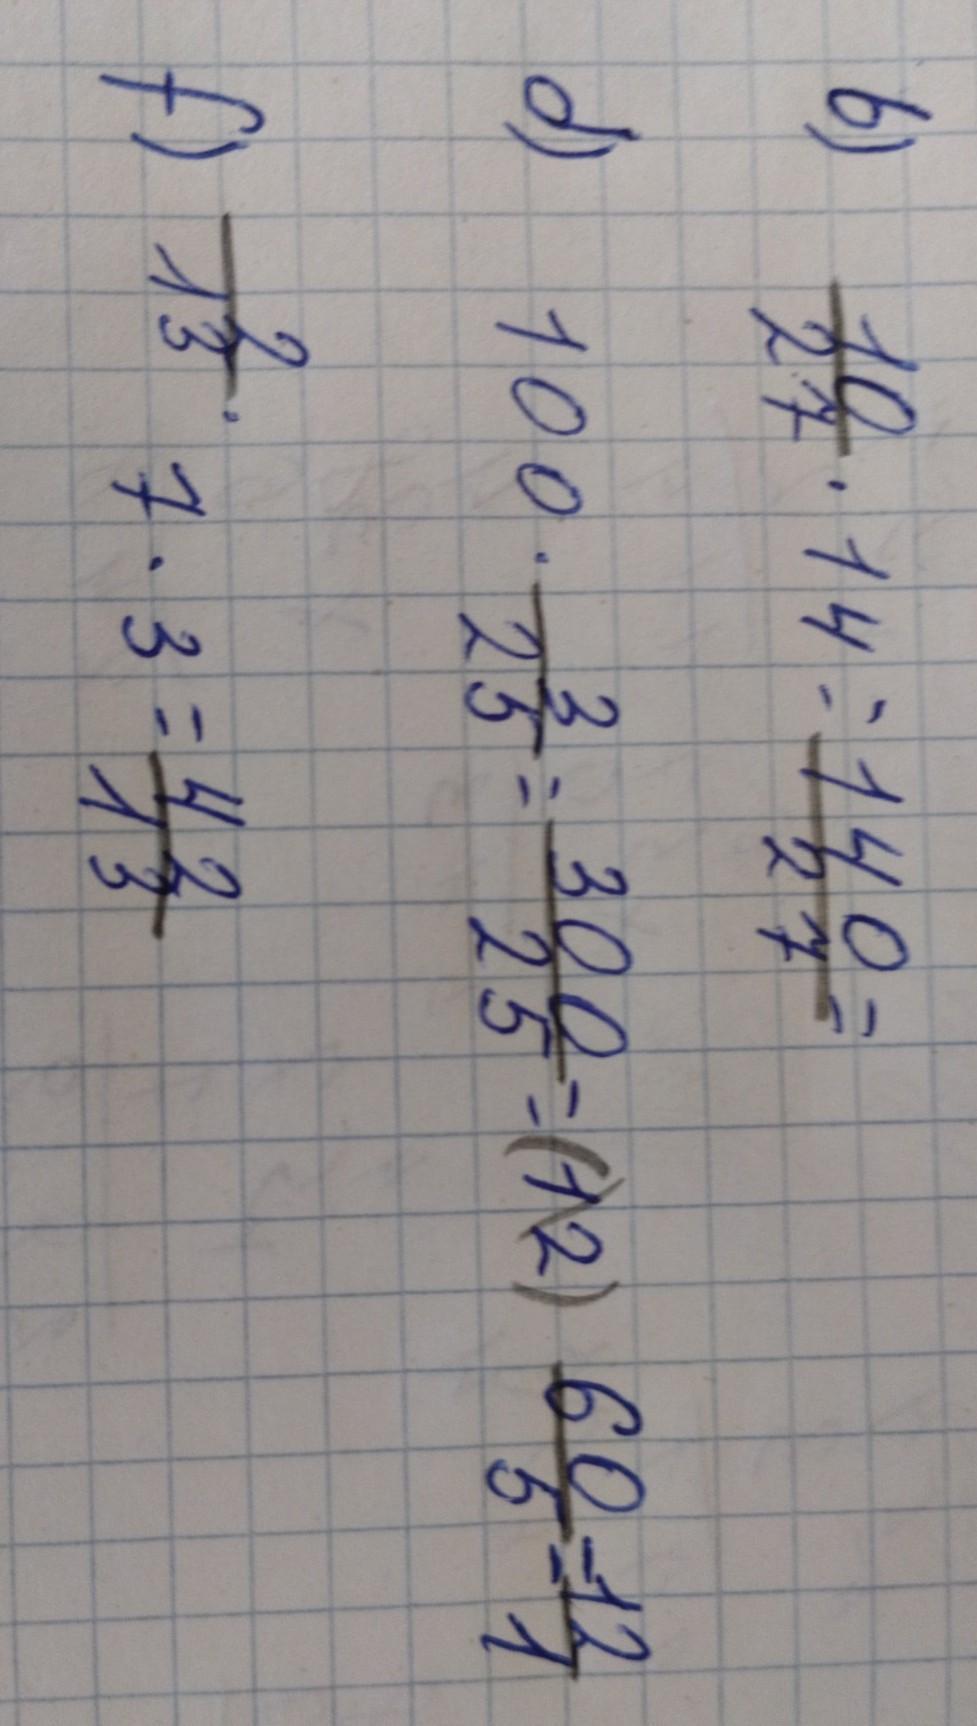 b) 10/27 · 14 = 140/27 =
d) 100 · 3/25 = 300/25 = (12) 60/5 = 12/1
f) 2/13 · 7 · 3 = 42/13